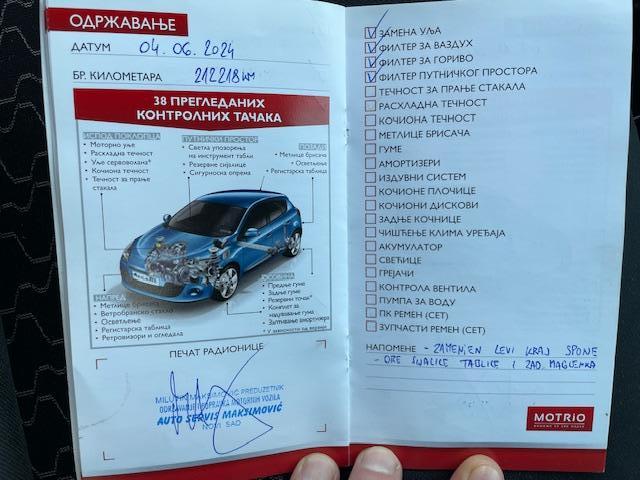 ОДРЖАВАЊЕ
ДАТУМ 04. 06. 2024
БР. КИЛОМЕТАРА 212218 KM
38 ПРЕГЛЕДАНИХ
КОНТРОЛНИХ ТАЧАКА
ИСПОД ПОКЛОПЦА
• Моторно уље
• Расхладна течност
• Уље серво волана*
• Кочиона течност
• Течност за прање
стакала
ПУТНИЧКИ ПРОСТОР
• Светла упозорења
на инструмент табли
• Резервне сијалице
• Сигурносна опрема
ПОЗАДИ
• Метлице брисача
• Осветљење
• Регистарска таблица
НАПРЕД
• Метлице брисача
• Ветробранско стакло
• Осветљење
• Регистарска таблица
• Ретровизори и огледала
• Предње гуме
• Задње гуме
• Резервни точак*
• Комплет за
надувавање гума
• Заптивање амортизера
* У зависности од верзије
ПЕЧАТ РАДИОНИЦЕ
MILUTIN MAKSIMOVIĆ PREDUZETNIK
ODRŽAVANJE I POPRAVKA MOTORNIH VOZILA
AUTO SERVIS MAKSIMOVIĆ
NOVI SAD
ЗАМЕНА УЉА
ФИЛТЕР ЗА ВАЗДУХ
ФИЛТЕР ЗА ГОРИВО
ФИЛТЕР ПУТНИЧКОГ ПРОСТОРА
ТЕЧНОСТ ЗА ПРАЊЕ СТАКАЛА
РАСХЛАДНА ТЕЧНОСТ
КОЧИОНА ТЕЧНОСТ
МЕТЛИЦЕ БРИСАЧА
ГУМЕ
АМОРТИЗЕРИ
ИЗДУВНИ СИСТЕМ
КОЧИОНЕ ПЛОЧИЦЕ
КОЧИОНИ ДИСКОВИ
ЗАДЊЕ КОЧНИЦЕ
ЧИШЋЕЊЕ КЛИМА УРЕЂАЈА
АКУМУЛАТОР
СВЕЋИЦЕ
ГРЕЈАЧИ
КОНТРОЛА ВЕНТИЛА
ПУМПА ЗА ВОДУ
ПК РЕМЕН (СЕТ)
ЗУПЧАСТИ РЕМЕН (СЕТ)
НАПОМЕНЕ - ZAMENJEN LEVI KRAJ SPONE
- OBE SIJALICE TABLICE I ZAD. MAGLENKA
MOTRIO